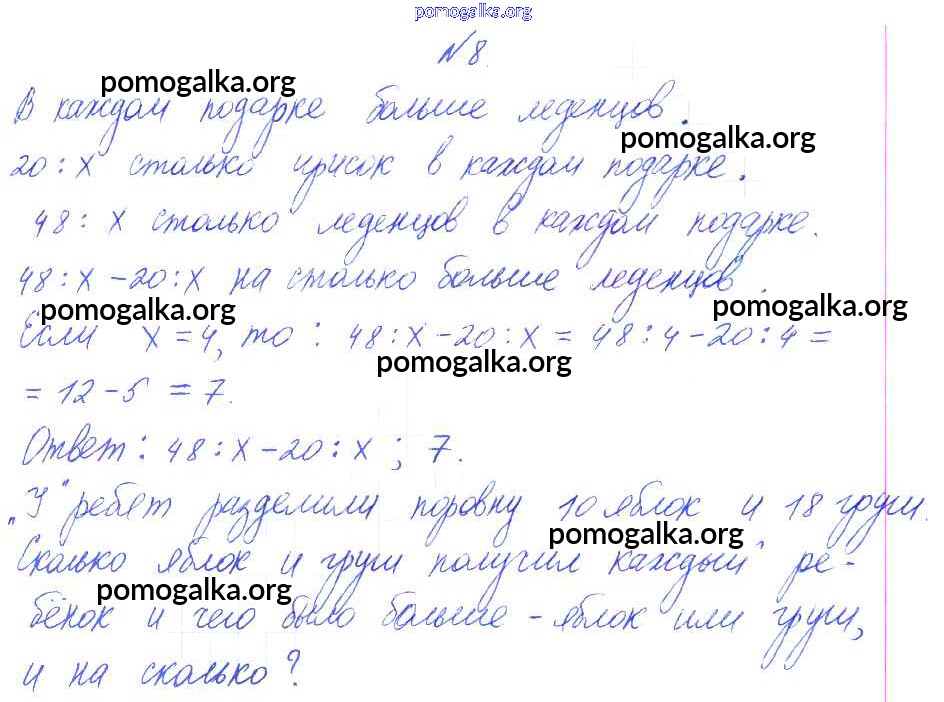 pomogalka.org
№8.
pomogalka.org
В каждом подарке больше леденцов.
pomogalka.org
20 : x столько ирисок в каждом подарке.
48 : x столько леденцов в каждом подарке.
48 : x - 20 : x на столько больше леденцов.
pomogalka.org
pomogalka.org
Если x = 4, то : 48 : x - 20 : x = 48 : 4 - 20 : 4 =
pomogalka.org
= 12 - 5 = 7.
Ответ : 48 : x - 20 : x ; 7.
„У" ребят разделили поровну 10 яблок и 18 груш.
pomogalka.org
Сколько яблок и груш получил каждый ре-
pomogalka.org
бёнок и чего было больше - яблок или груш,
и на сколько?